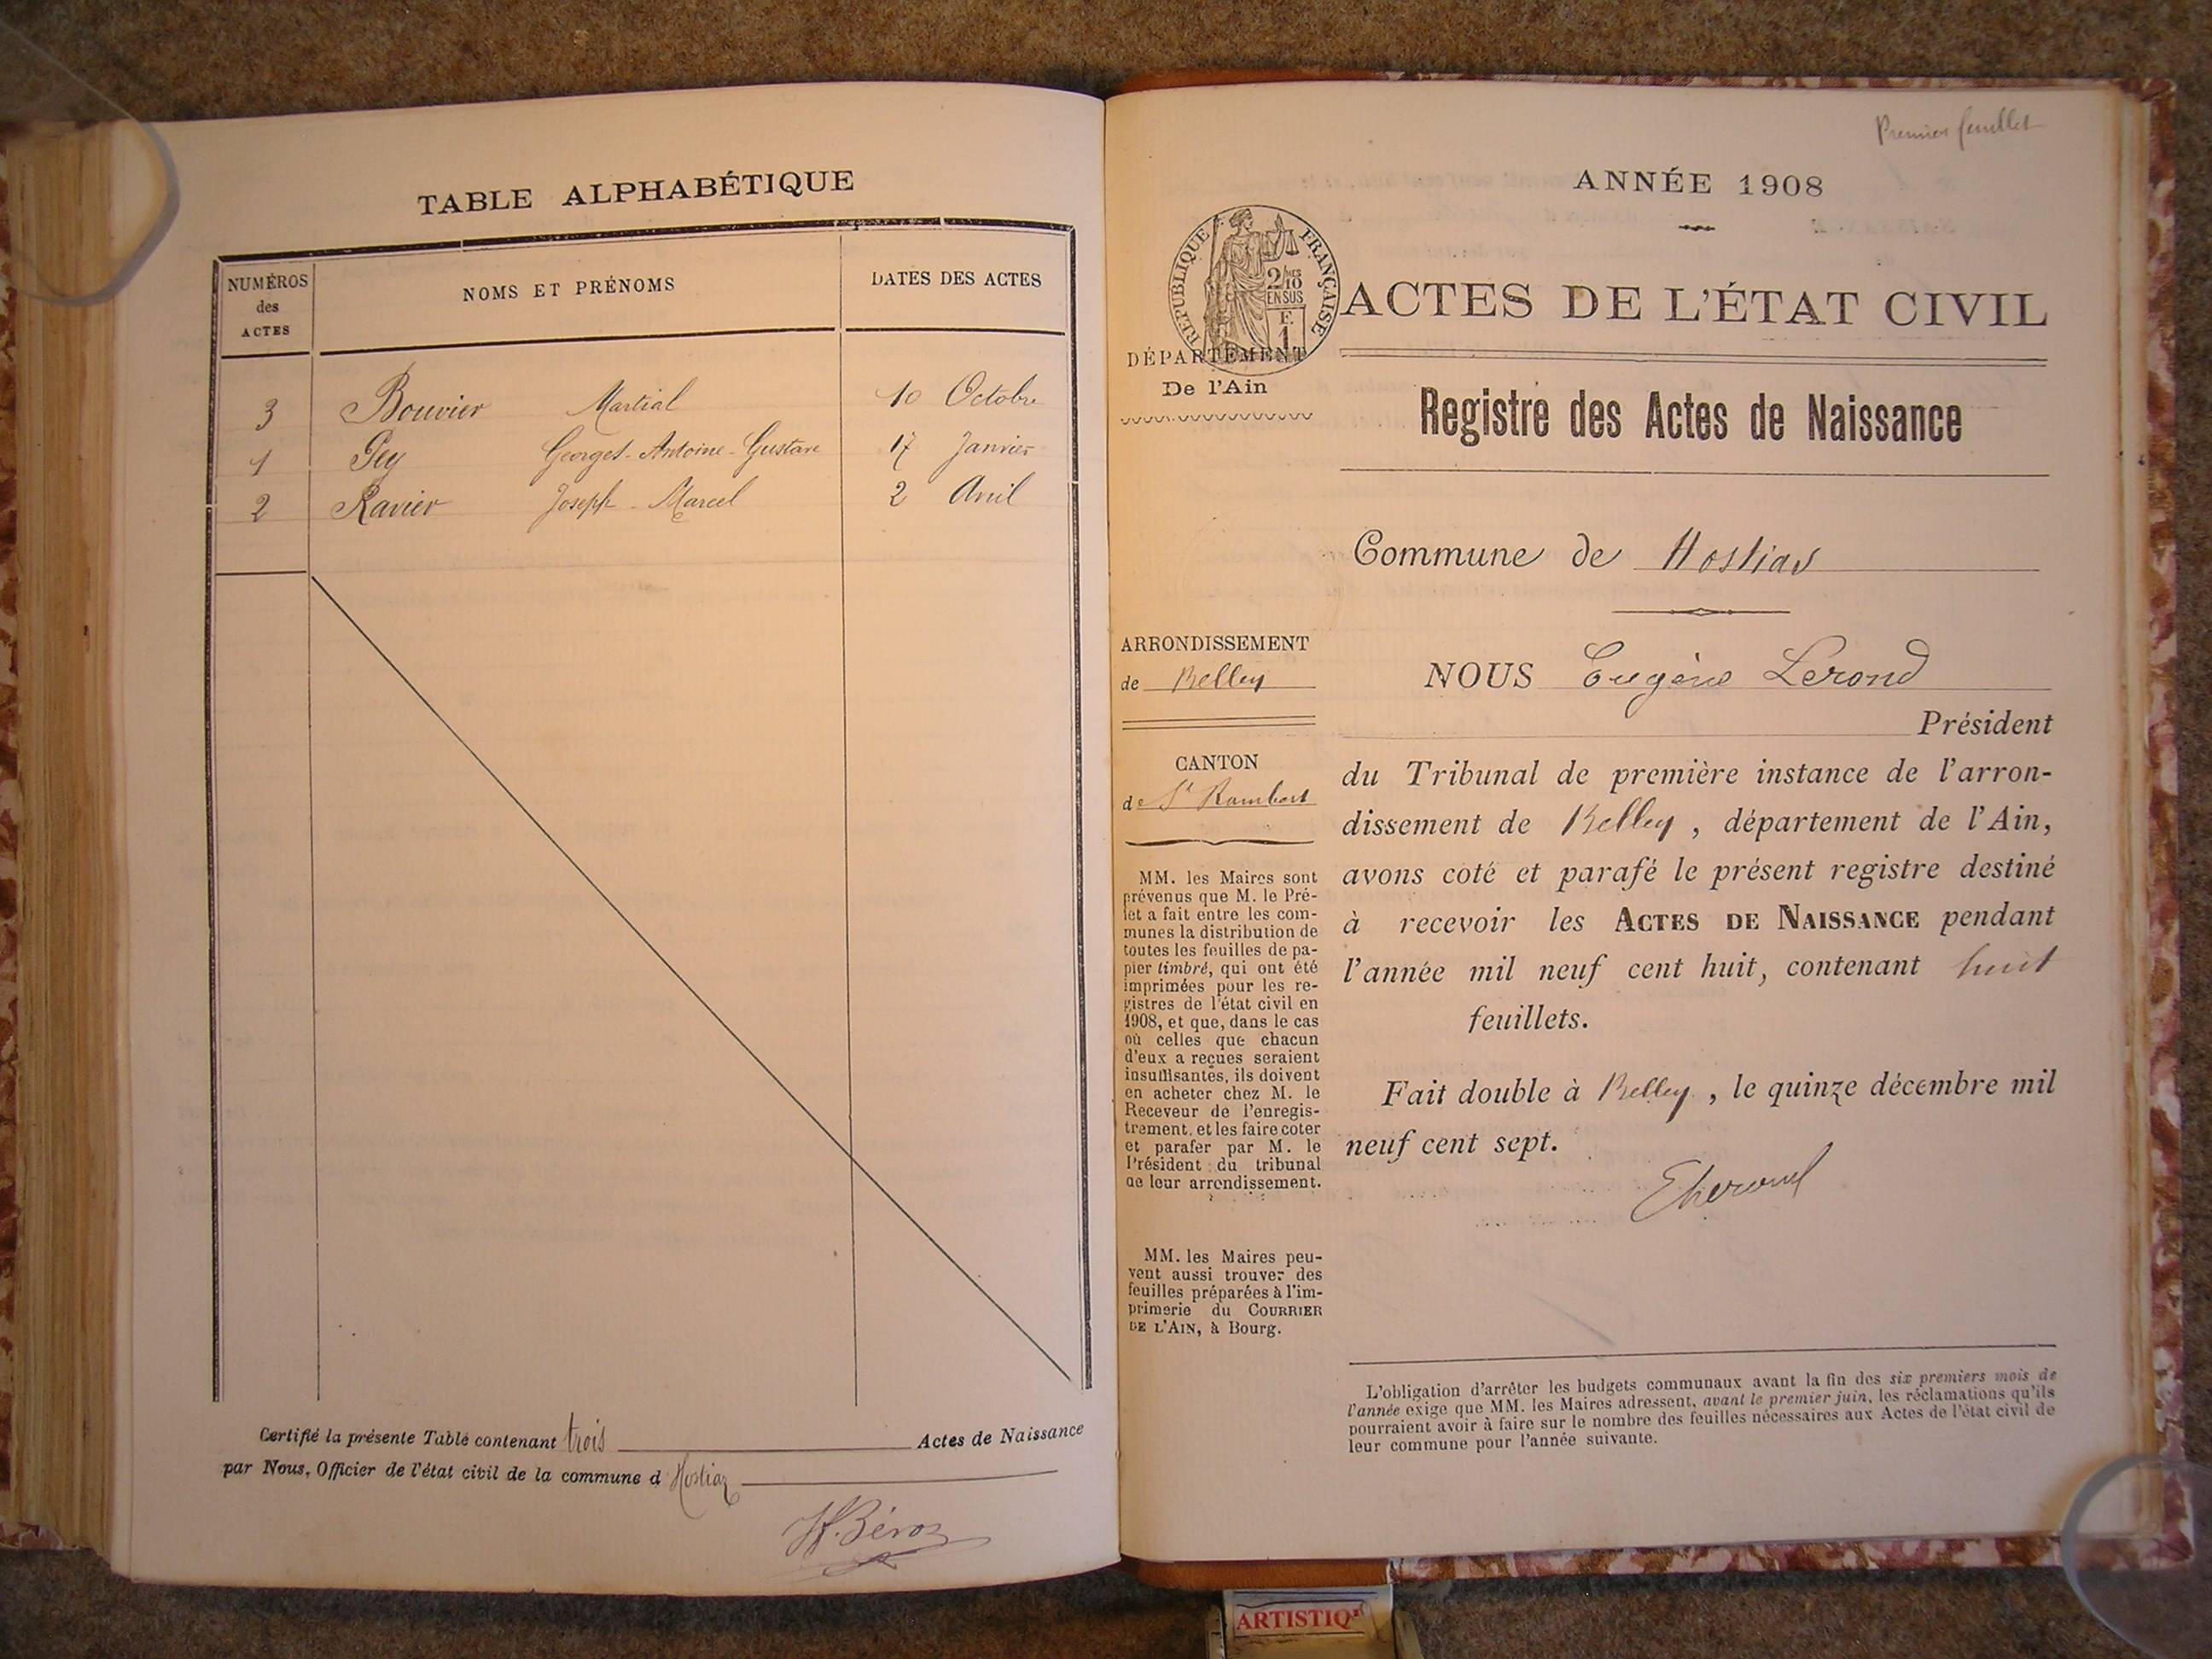 TABLE ALPHABÉTIQUE
NUMÉROS des ACTES
NOMS ET PRÉNOMS
DATES DES ACTES
3 Bouvier Martial 10 Octobre
1 Gey Georges-Antoine-Gustave 17 Janvier
2 Ravier Joseph-Marcel 2 Avril
Certifié la présente Table contenant trois Actes de Naissance
par Nous, Officier de l'état civil de la commune d Hostiaz
H. Béroz
Premier feuillet
ANNÉE 1908
RÉPUBLIQUE FRANÇAISE
2/10MES
EN SUS
F.
1
ACTES DE L'ÉTAT CIVIL
DÉPARTEMENT
De l'Ain
Registre des Actes de Naissance
Commune de Hostias
ARRONDISSEMENT
de Belley
CANTON
de St Rambert
MM. les Maires sont
prévenus que M. le Pré-
fet a fait entre les com-
munes la distribution de
toutes les feuilles de pa-
pier timbré, qui ont été
imprimées pour les re-
gistres de l'état civil en
1908, et que, dans le cas
où celles que chacun
d'eux a reçues seraient
insuffisantes, ils doivent
en acheter chez M. le
Receveur de l'enregis-
trement, et les faire coter
et parafer par M. le
Président du tribunal
de leur arrondissement.
MM. les Maires peu-
vent aussi trouver des
feuilles préparées à l'im-
primerie du COURRIER
DE L'AIN, à Bourg.
NOUS Eugène Lerond
Président
du Tribunal de première instance de l'arron-
dissement de Belley, département de l'Ain,
avons coté et parafé le présent registre destiné
à recevoir les ACTES DE NAISSANCE pendant
l'année mil neuf cent huit, contenant huit
feuillets.
Fait double à Belley, le quinze décembre mil
neuf cent sept.
L'obligation d'arrêter les budgets communaux avant la fin des six premiers mois de
l'année exige que MM. les Maires adressent, avant le premier juin, les réclamations qu'ils
pourraient avoir à faire sur le nombre des feuilles nécessaires aux Actes de l'état civil de
leur commune pour l'année suivante.
ARTISTIQ